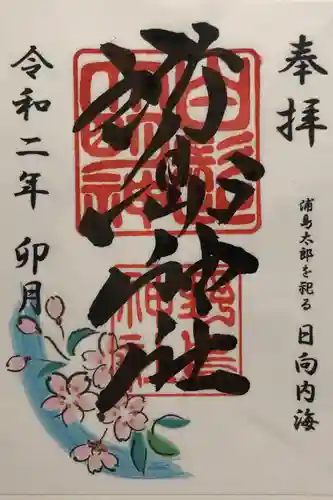 奉拝
浦島太郎を祀る
日向内海
野島神社
令和二年 卯月